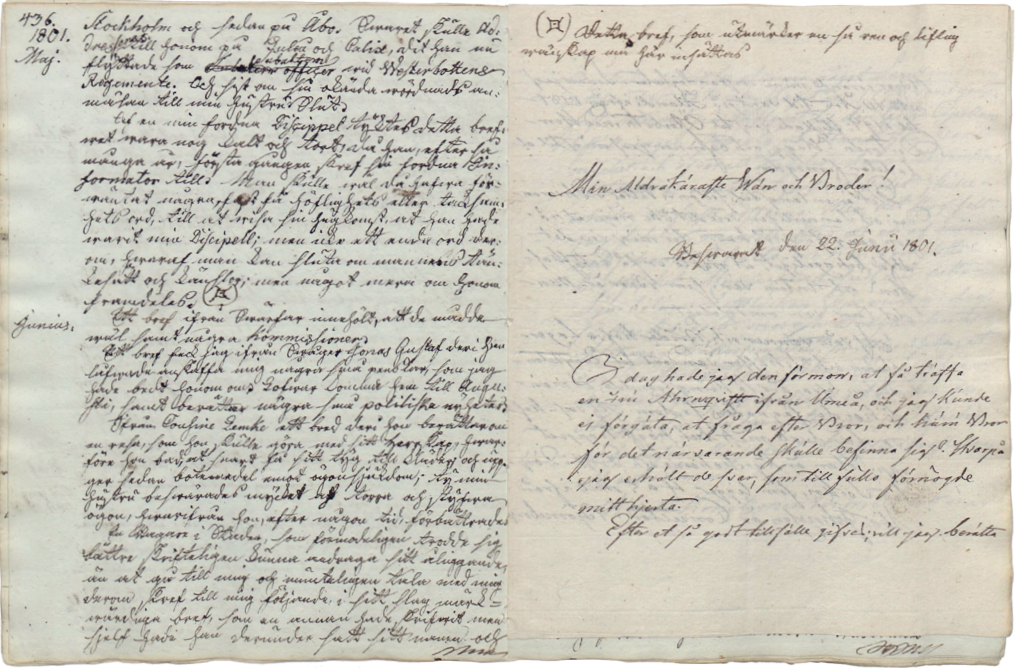 436.
1801.
Maj.
Stockholm och sedan på Åbo. Swaret skulle ad-
till honom på Luleå och Piteå, dit han nu
flyttade som vid Westerbottens
Regemente. Och sist om sin olärda wördnads an-
mälan till min Hustru. Slut.
en min fordna Discippel
wet wara nog kalt och kort, då han, efter så
många år, första gången skref sin fordna In-
formator till. Man skulle wäl då
wäntat något få höflighets eller tacksam-
hets ord, till at wisa sin hugkomst, at han hade
warit min Discipell; men icke ett enda ord der-
om, hwaraf man kan sluta om mannens tän-
kesätt och känslor; men något mera om honom
framdeles.
Junius.
Ett bref ifrån Swärfar innehölt, att de mådde
wäl, samt några Kommissioner.
Ett bref fick jag ifrån Swåger Jonas Gustaf deri han
lofwade anskaffa mig några fina som jag
hade bedt honom om, komma hem till Augu-
sti, samt berättar några små politiska nyheter.
Ifrån Cousine Lemke ett bref deri hon berättar om
en resa, som hon skulle göra med sitt Herrskap, hwar-
före hon badat snart få sitt tyg, till kläder, och upp-
ger sedan botemedel emot ögonsjukdom; ty min
Hustru beswärades mycket af torra och
ögon, hwarifrån hon, efter någon tid, förbättrades
En Bagare i Staden, som förmodeligen trodde sig
bättre skrifteligen kunna andraga sitt åliggande,
än at gå till mig och munteligen tala med mig
derom, skref till mig följande, i sitt slag märk-
wärdiga bref, som en annan hade skrifwit men
sjelf hade han derunder satt sitt namn och
Detta bref, som utmärker en så ren och liflig
wänskap må här insättas
Min Aldrakäraste Wän och Broder!
den 22. Junii 1801.
I dag hade jag den förmon, at få träffa
en hin Ahrnqvist ifrån Umeå, och jag kunde
ej förgäta, at fråga efter Bror, och huru Bror
för det närvarande skulle befinna sig. Hvarpå
jag erhölt de svar, som till fulls förnögde
mitt hjerta.
Efter et så godt tillfälle gifves, vill jag berätta